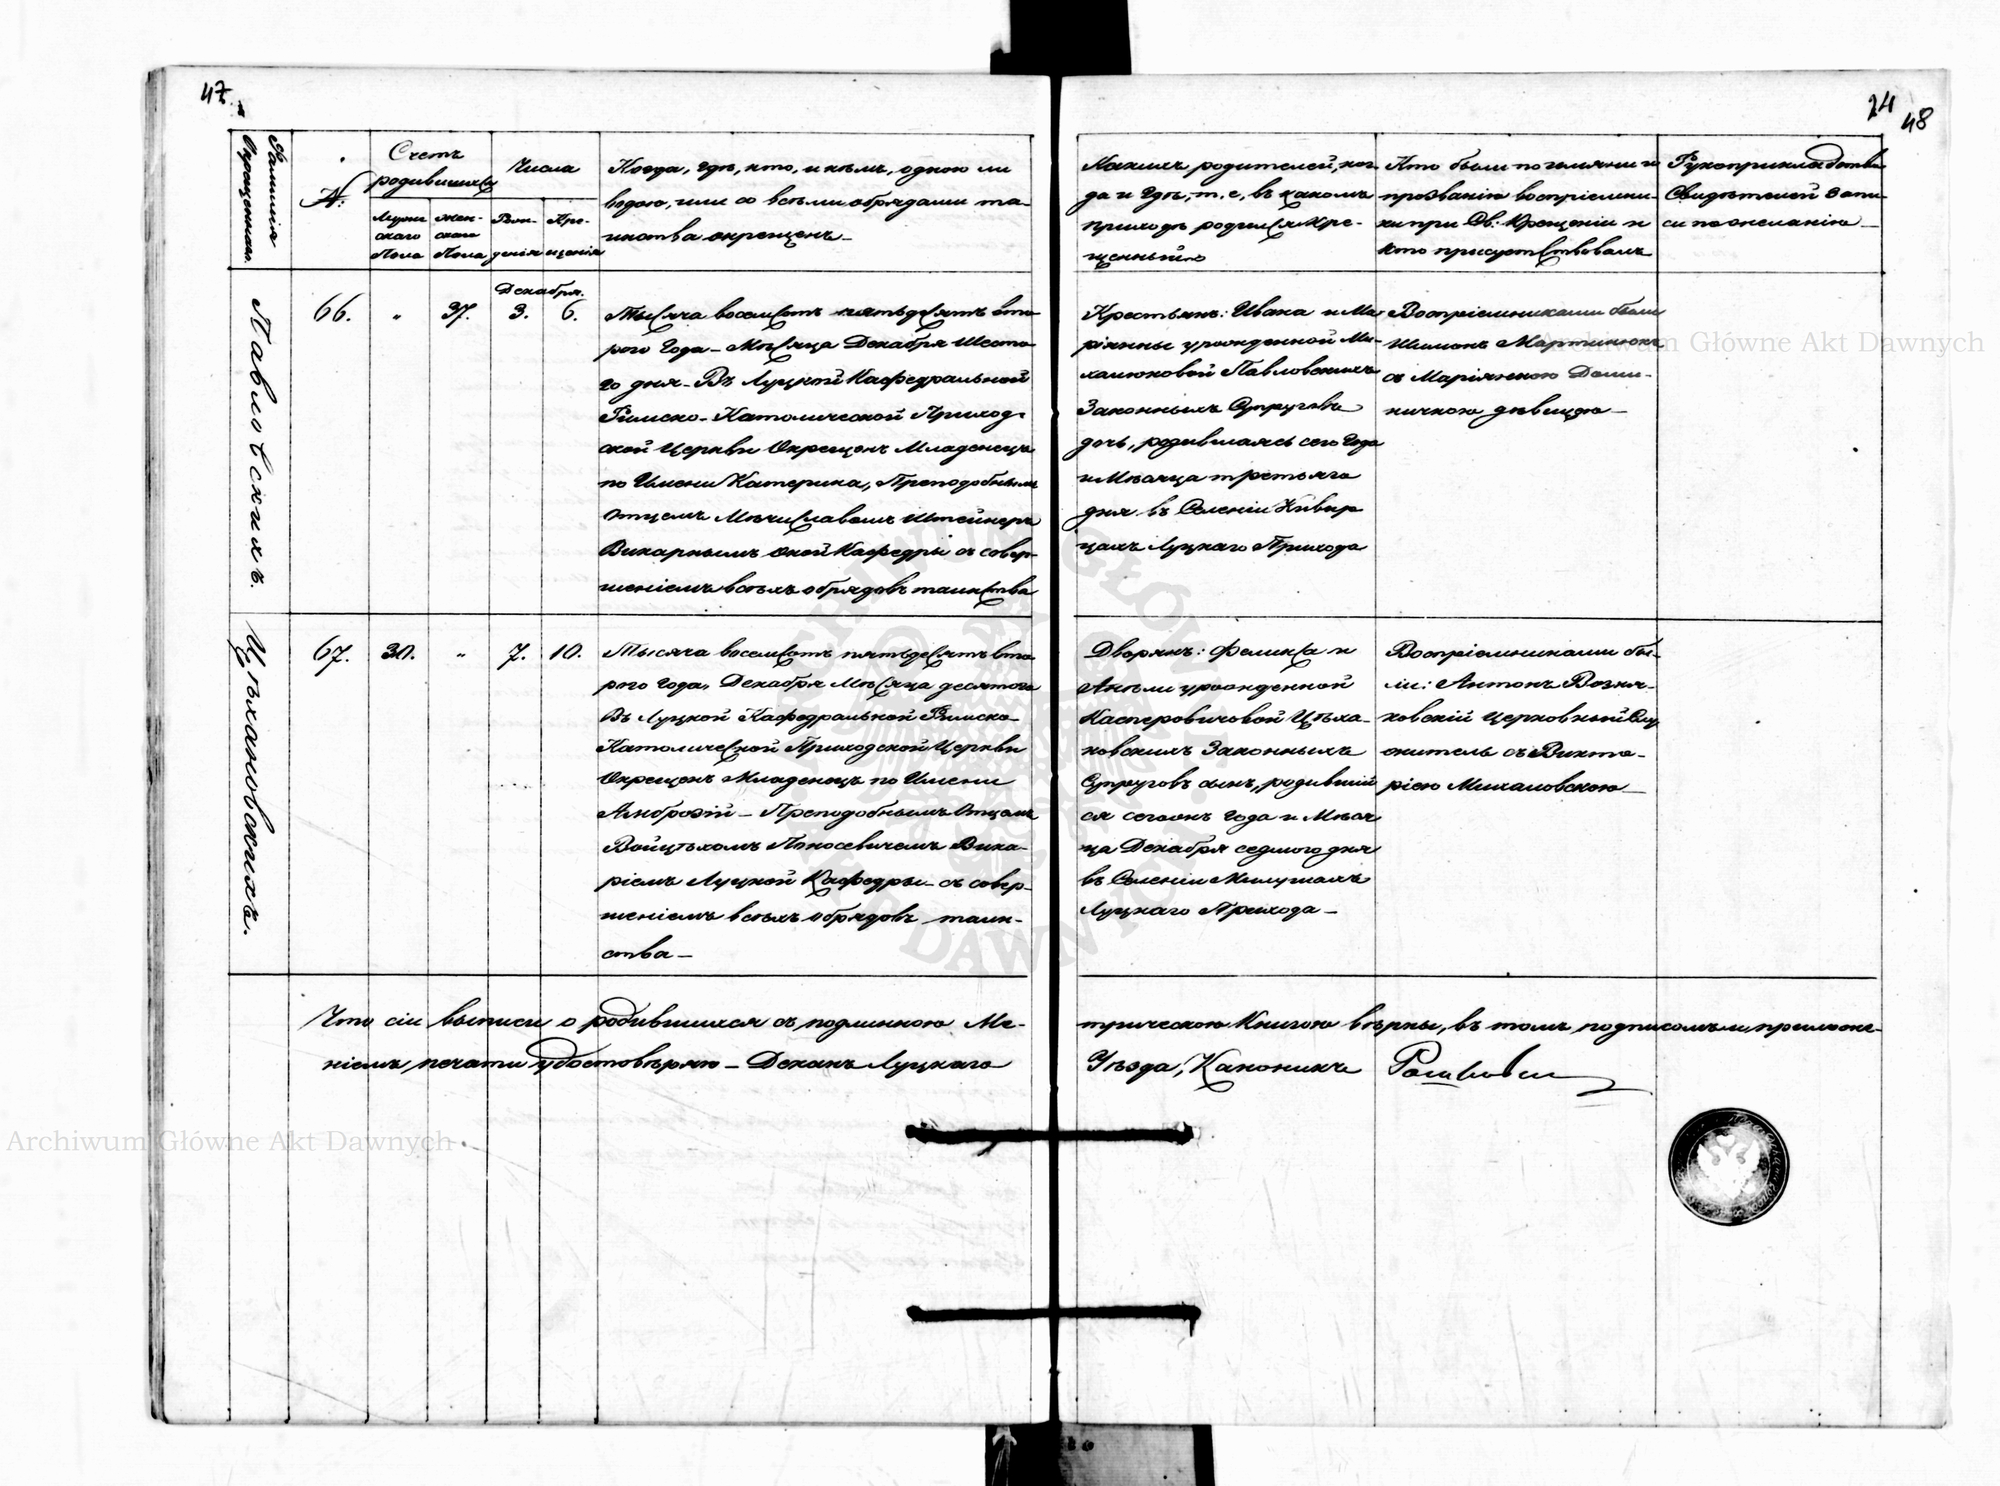 47.
24
48
Фамилія
Окрещеннаго.
№:
Счетъ
родившихся
Мужескаго
Пола
Женскаго
Пола
Числа
Рожденія
Крещенія
Когда, гдѣ, кто, и кѣмъ, одною ли
водою, или со всѣми обрядами та-
инства окрещенъ —
Какихъ родителей, ког-
да и гдѣ, т. е, въ какомъ
приходѣ родился Кре-
щенный
Кто были по имяни и
прозванію воспріемни-
ки при Св: Крещеніи и
кто присутствовалъ
Рукоприкладства
Свидѣтелей Запи-
си по желанію —
Павловскихъ.
66.
"
37.
Декабря.
3.
6.
Тысяча восемсотъ пятьдесятъ вто-
рого Года — Мѣсяца Декабря Шесто-
го дня — Въ Луцкой Кафедральной
Римско-Католической Приход-
ской Церкви Окрещенъ Младенецъ
по Имени Катерина, Преподобнымъ
Отцемъ Мѣчиславомъ Штейнеръ
Викарнымъ оной Кафедры съ совер-
шеніемъ всѣхъ обрядовъ таинства
Крестьянъ: Ивана и Ма-
ріянны урожденной Ми-
халюковой Павловскихъ
Законныхъ Супруговъ
дочь, родившаясь сего Года
и Мѣсяца третьяго
дня въ Селеніи Кивер
цахъ Луцкаго Прихода
Воспріемниками были
Шимонъ Мартинюкъ
съ Маріянною Доми-
ничкою дѣвицею —
Цѣхановскихъ.
67.
30.
"
7.
10.
Тысяча восемсотъ пятьдесятъ вто-
рого Года, Декабря Мѣсяца десятого
Въ Луцкой Кафедральной Римско
Католической Приходской Церкви
Окрещенъ Младенецъ по Имени
Амброзій — Преподобнымъ Отцемъ
Войцѣхомъ Вика-
ріемъ Луцкой Кафедры — съ совер-
шеніемъ всѣхъ обрядовъ таин-
ства —
Дворянъ: Феликса и
Анели урожденной
Касперовичовой Цѣха-
новскихъ Законныхъ
Супруговъ сынъ, родившій
ся сегожъ Года и Мѣся
ца Декабря седмого дня
въ Селеніи Милушахъ
Луцкаго Прихода —
Воспріемниками бы-
ли: Антонъ Возня-
ковскій Церковный Слу
житель съ Викто-
ріею Михаловскою —
Что сіи выписи о родившихся съ подлинною Ме-
трическою Книгою вѣрны, въ томъ подписомъ и приложе-
ніемъ печати удостовѣряю — Деканъ Луцкаго
Уѣзда, Каноникъ
Archiwum Główne Akt Dawnych
Archiwum Główne Akt Dawnych